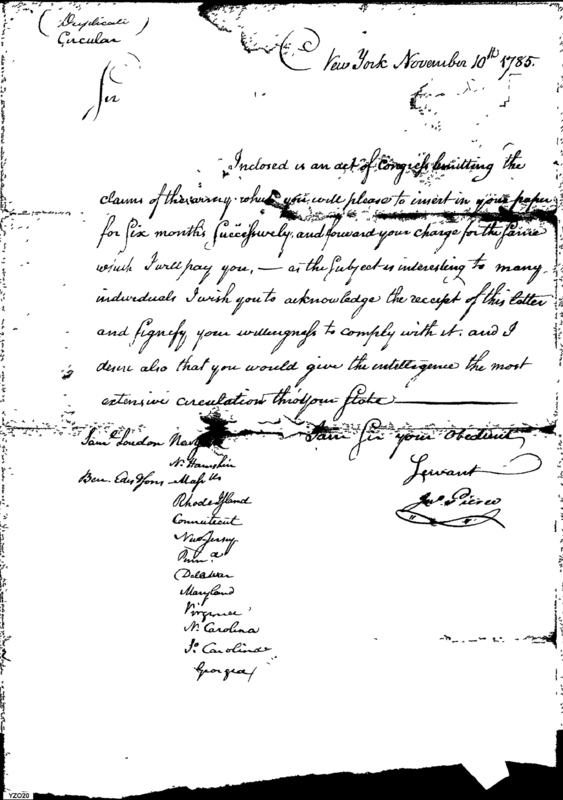 (Duplicate)
Circular
New York November 10th 1785.
Sir
Inclosed is an act of Congress limitting the
claims of the army. which you will please to insert in your paper
for Six months Successively, and forward your charge for the same
which I will pay you, — as the Subject is interesting to many
individuals I wish you to acknowledge the receipt of this letter
and Signefy your willingness to comply with it. and I
desire also that you would give the intelligence the most
extensive circulation thro your State
I am Sir your Obedient
Servant
Jno. Pierce
Saml. Loudon New
N. Hamshire
Ben. Edes & Sons - Massts
Rhode Island
Connecticut
New Jersey
Penn.a
Delawar
Maryland
Virginia
No. Carolina
So. Carolina
Georgia
YZO20